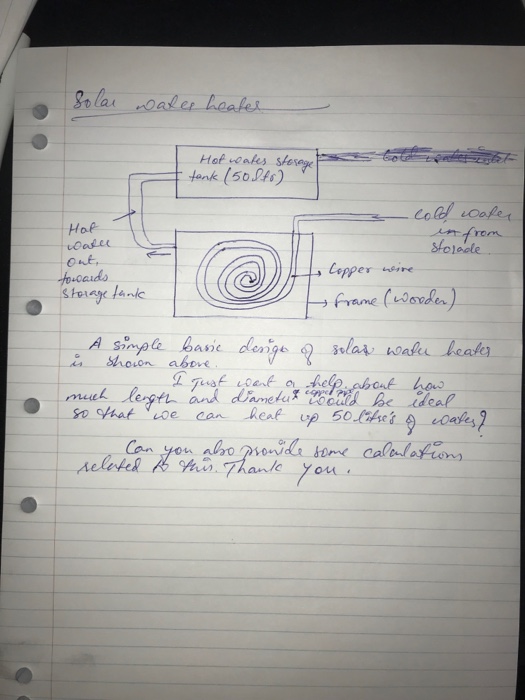 Solar water heater
Hot water storage
tank (50 ltrs)
cold water
in from
storage
Hot
water
out,
towards
storage tank
Copper wire
frame (wooden)
A simple basic design of solar water heater
is shown above.
I just want a help about how
copper pipe
much length and diameter would be ideal
so that we can heat up 50 litre's of water?
Can you also provide some calculations
related to this. Thank you.